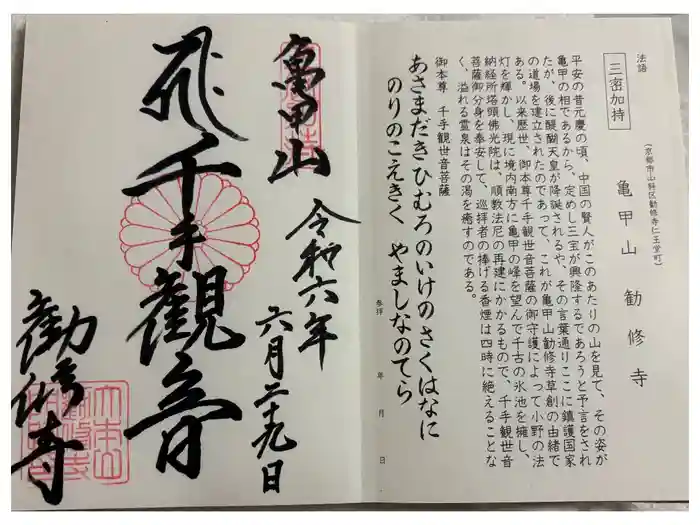 法語
三密加持
(京都市山科区勧修寺仁王堂町)
亀甲山 勧修寺
平安の昔元慶の頃、中国の賢人がこのあたりの山を見て、その姿が
亀甲の相であるから、定めし三宝が興隆するであろうと予言をされ
たが、後に醍醐天皇が降誕されるや、その言葉通りここに鎮護国家
の道場を建立されたのであって、これが亀甲山勧修寺草創の由緒で
ある。以来歴世、御本尊千手観世音菩薩の御守護によって小野の法
灯を輝かし、現に境内南方に亀甲の峰を望んで千古の氷池を擁し、
納経所塔頭佛光院は、順教法尼の再建にかかるもので、千手観世音
菩薩御分身を奉安して、巡拝者の捧げる香煙は四時に絶えることな
く、溢れる霊泉はその渇を癒すのである。
御本尊 千手観世音菩薩
あさまだきひむろのいけのさくはなに
のりのこえきく やましなのてら
参拝 年 月 日
亀甲山
令和六年
六月二十九日
千手観音
勧修寺